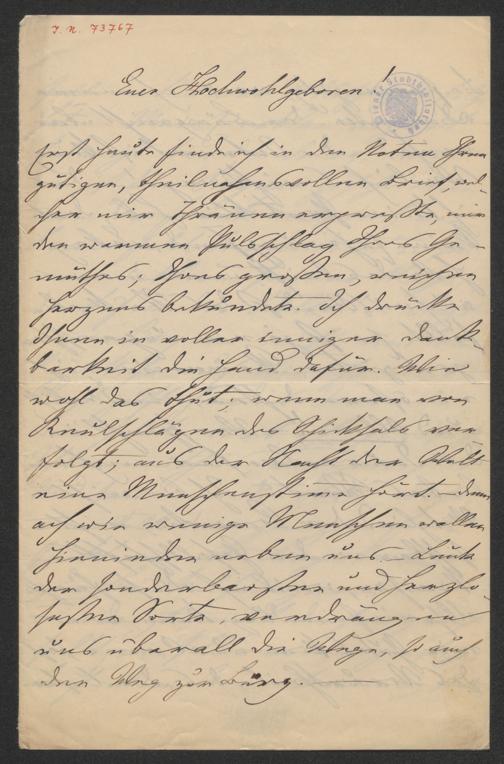 I. N. 73767
Euer Hochwohlgeboren!
Erst heute finde ich in den Noten Ihren
gütigen, theilnahmsvollen Brief, wel-
cher mir Thränen erpreßte, mir
den warmen Pulsschlag Ihres Ge-
müthes; Ihres großen, reichen
Herzens bekundete. Ich drücke
Ihnen in voller inniger Dank-
barkeit die Hand dafür. Wie
wohl das thut; wenn man von
Keulschlägen des Schicksals ver-
folgt; aus der Nacht der Welt
eine Menschenstimme hört. – denn
ach wie wenige Menschen wallen
hienieden neben uns – Leute
der sonderbarsten und herzlo-
sesten Sorte, verdrängen
uns überall die Wege, so auch
den Weg zur Burg. –